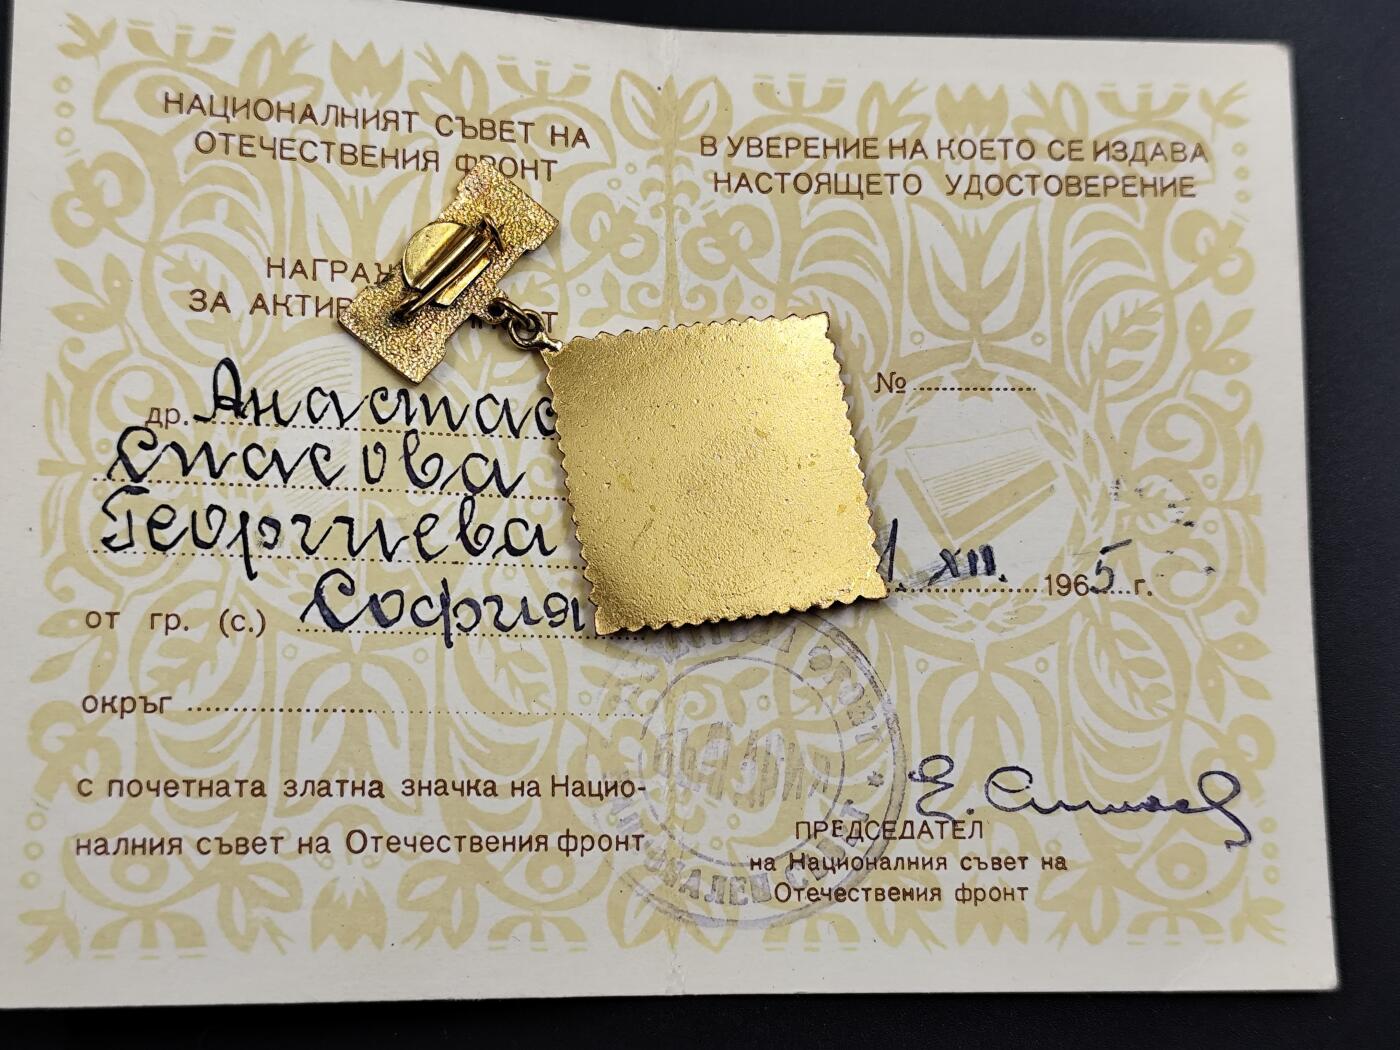 НАЦИОНАЛНИЯТ СЪВЕТ НА
ОТЕЧЕСТВЕНИЯ ФРОНТ
ЗА
др.
Спасова
Георгиева
от гр. (с.) София
окръг
с почетната златна значка на Нацио-
налния съвет на Отечествения фронт
В УВЕРЕНИЕ НА КОЕТО СЕ ИЗДАВА
НАСТОЯЩЕТО УДОСТОВЕРЕНИЕ
№
XII. 1965 г.
ПРЕДСЕДАТЕЛ
на Националния съвет на
Отечествения фронт